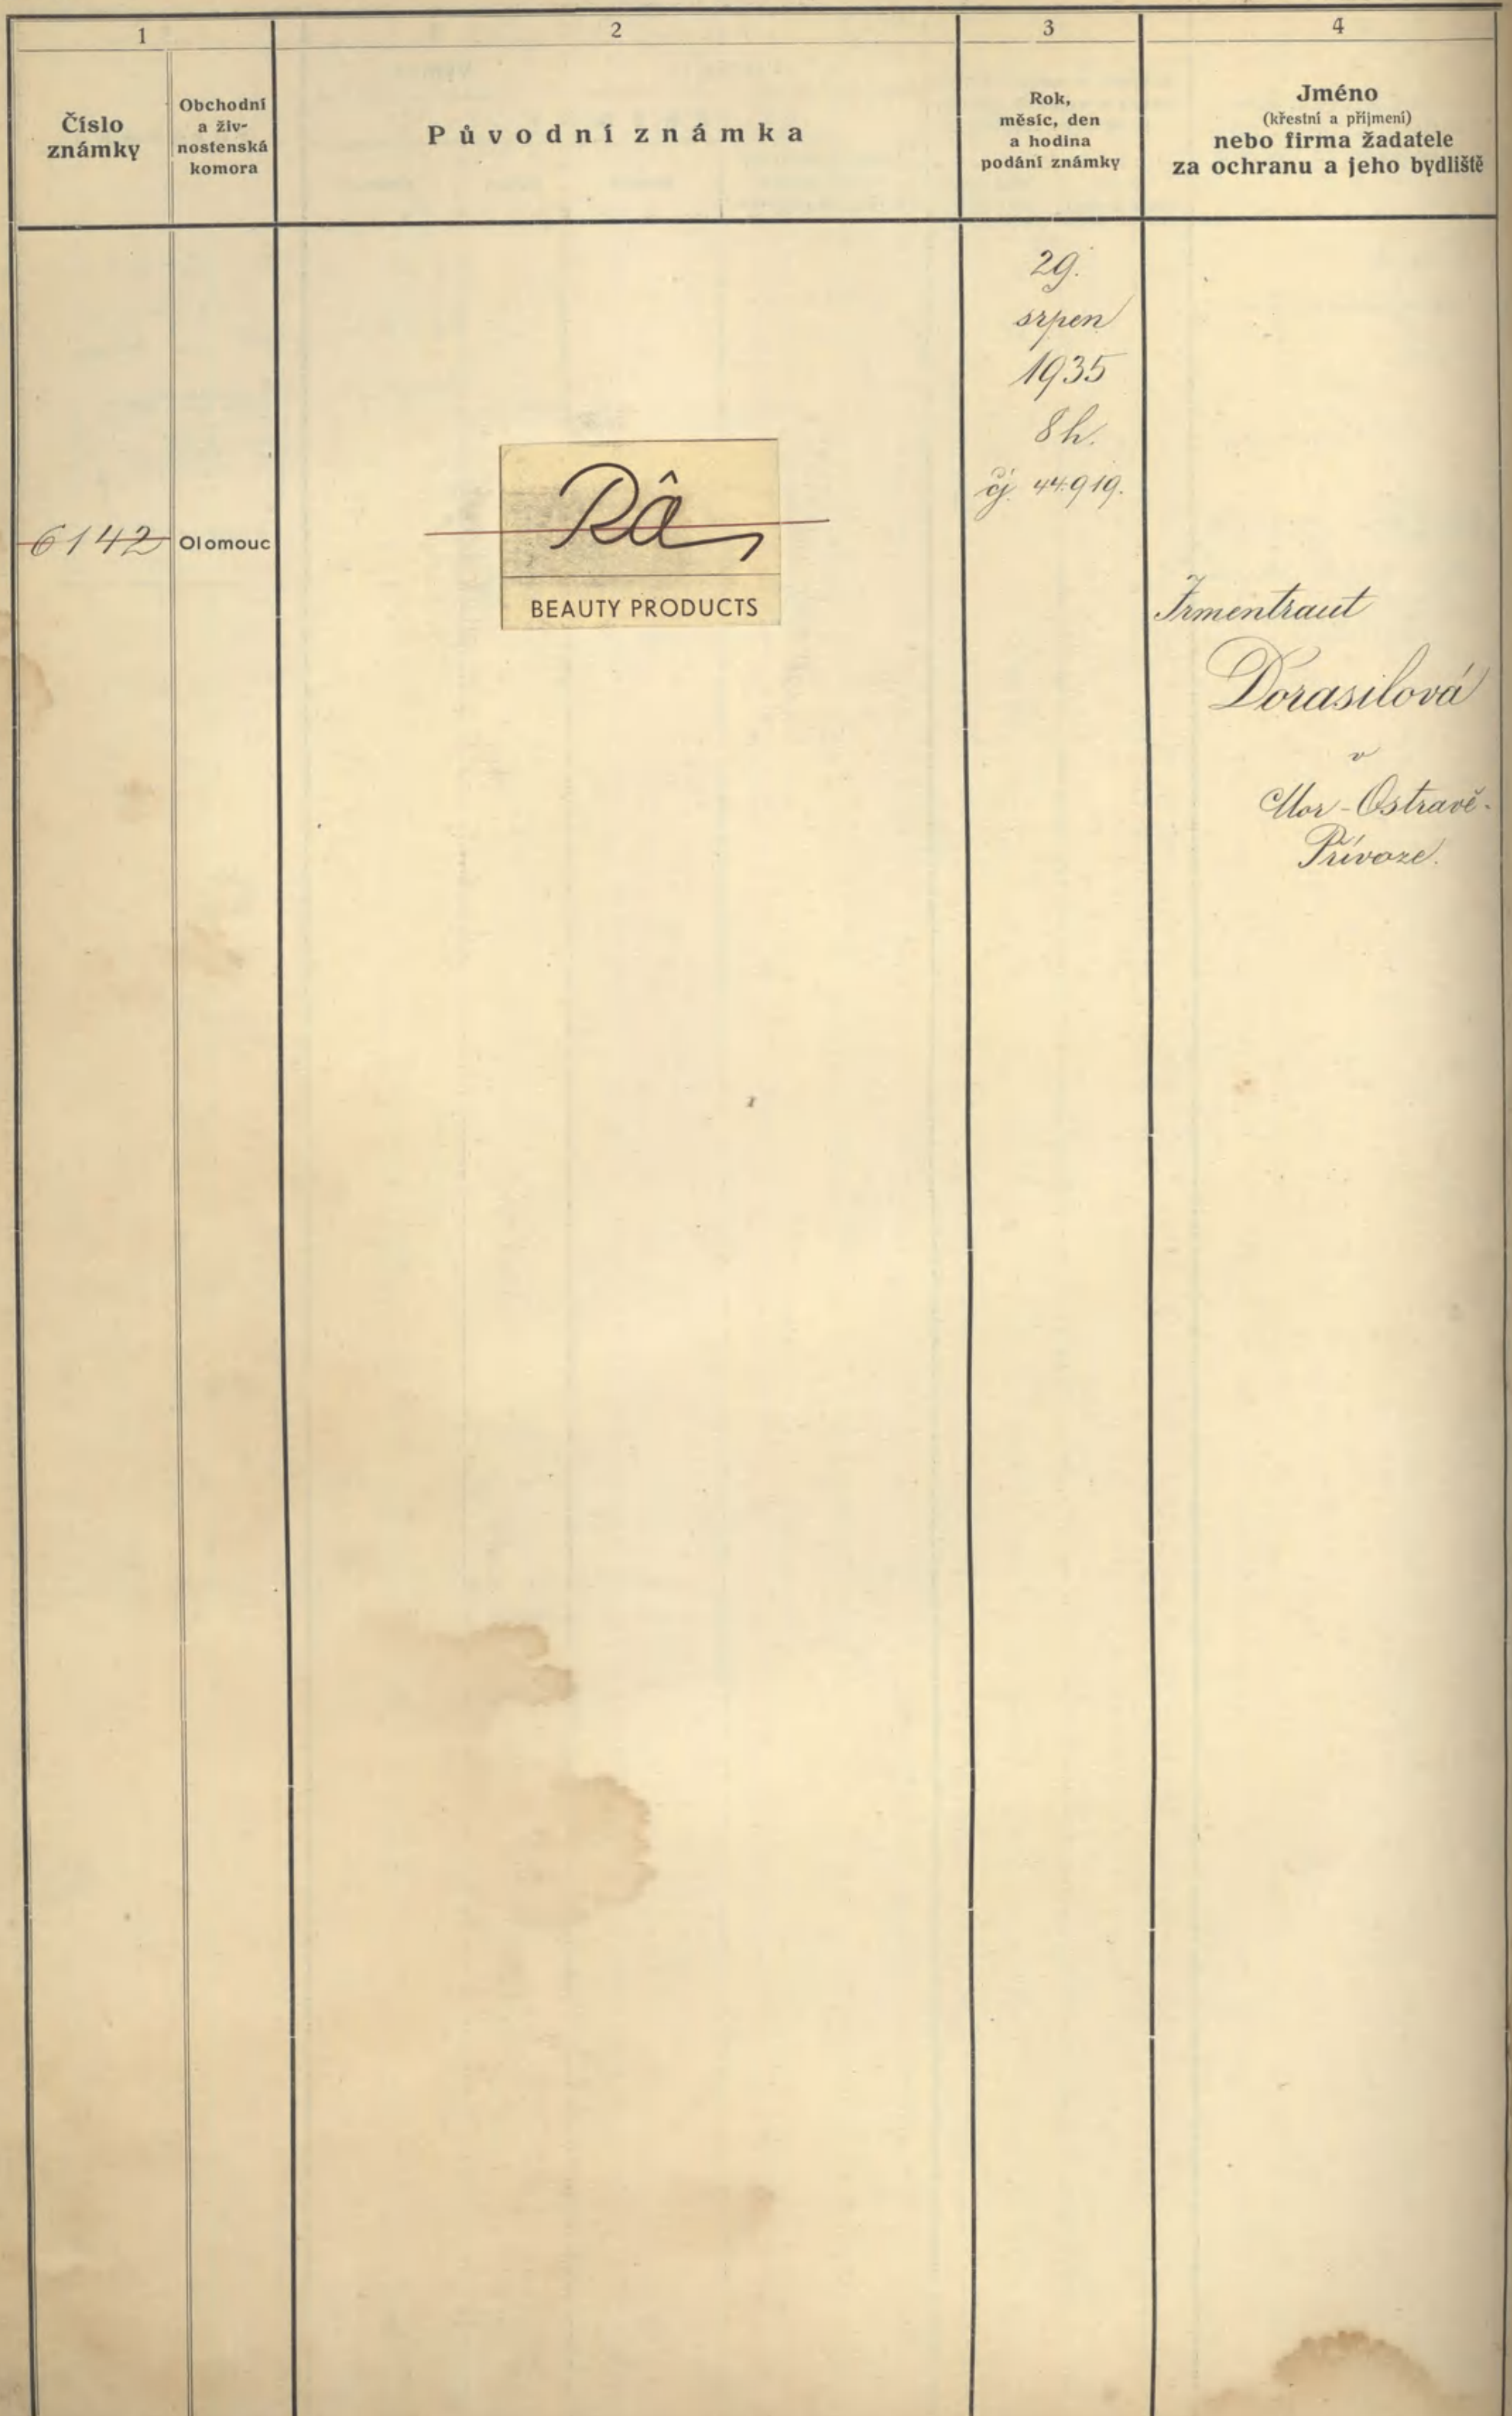 1
2
3
4
Číslo
známky
Obchodní
a živ-
nostenská
komora
Původní známka
Rok,
měsíc, den
a hodina
podání známky
Jméno
(křestní a příjmení)
nebo firma žadatele
za ochranu a jeho bydliště
6142
Olomouc
Râ
BEAUTY PRODUCTS
29.
srpen
1935
8 h.
čj. 44.919.
Irmentraut
Dorasilová
v
Mor-Ostravě-
Přívoze.